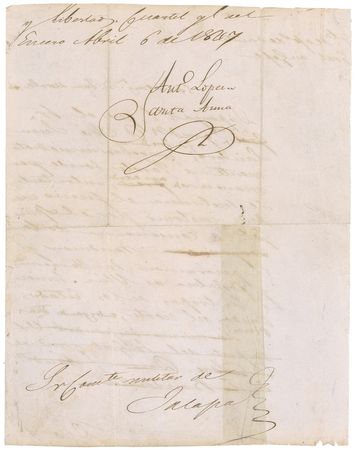 y libertad. Cuartel gral. del
Encero Abril 6 de 1847
Anto. Lopez de
Santa Anna
Sr. Comte. militar de
Jalapa